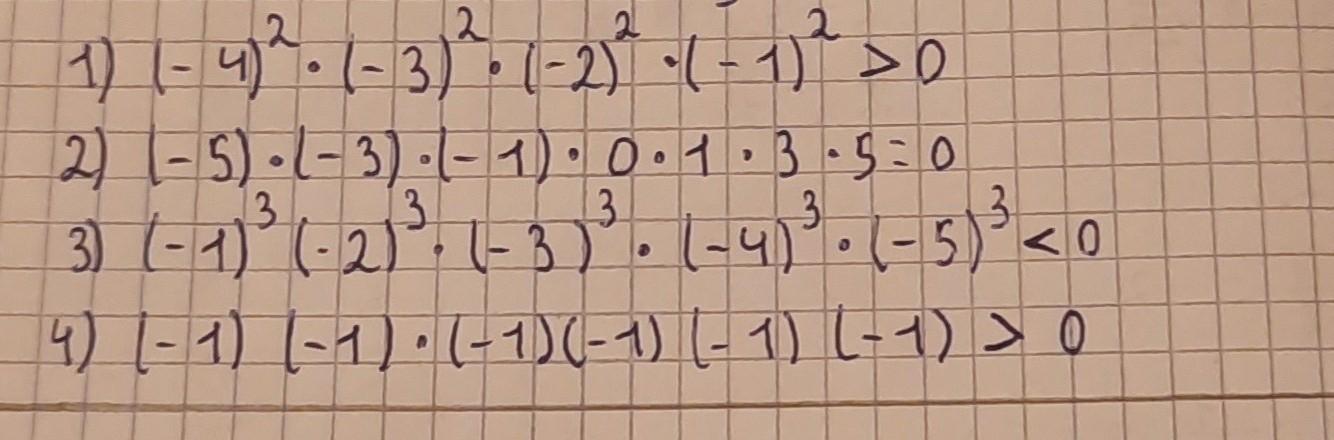 1) (-4)² · (-3)² · (-2)² · (-1)² > 0
2) (-5) · (-3) · (-1) · 0 · 1 · 3 · 5 = 0
3) (-1)³ (-2)³ · (-3)³ · (-4)³ · (-5)³ < 0
4) (-1) (-1) · (-1) (-1) (-1) (-1) > 0